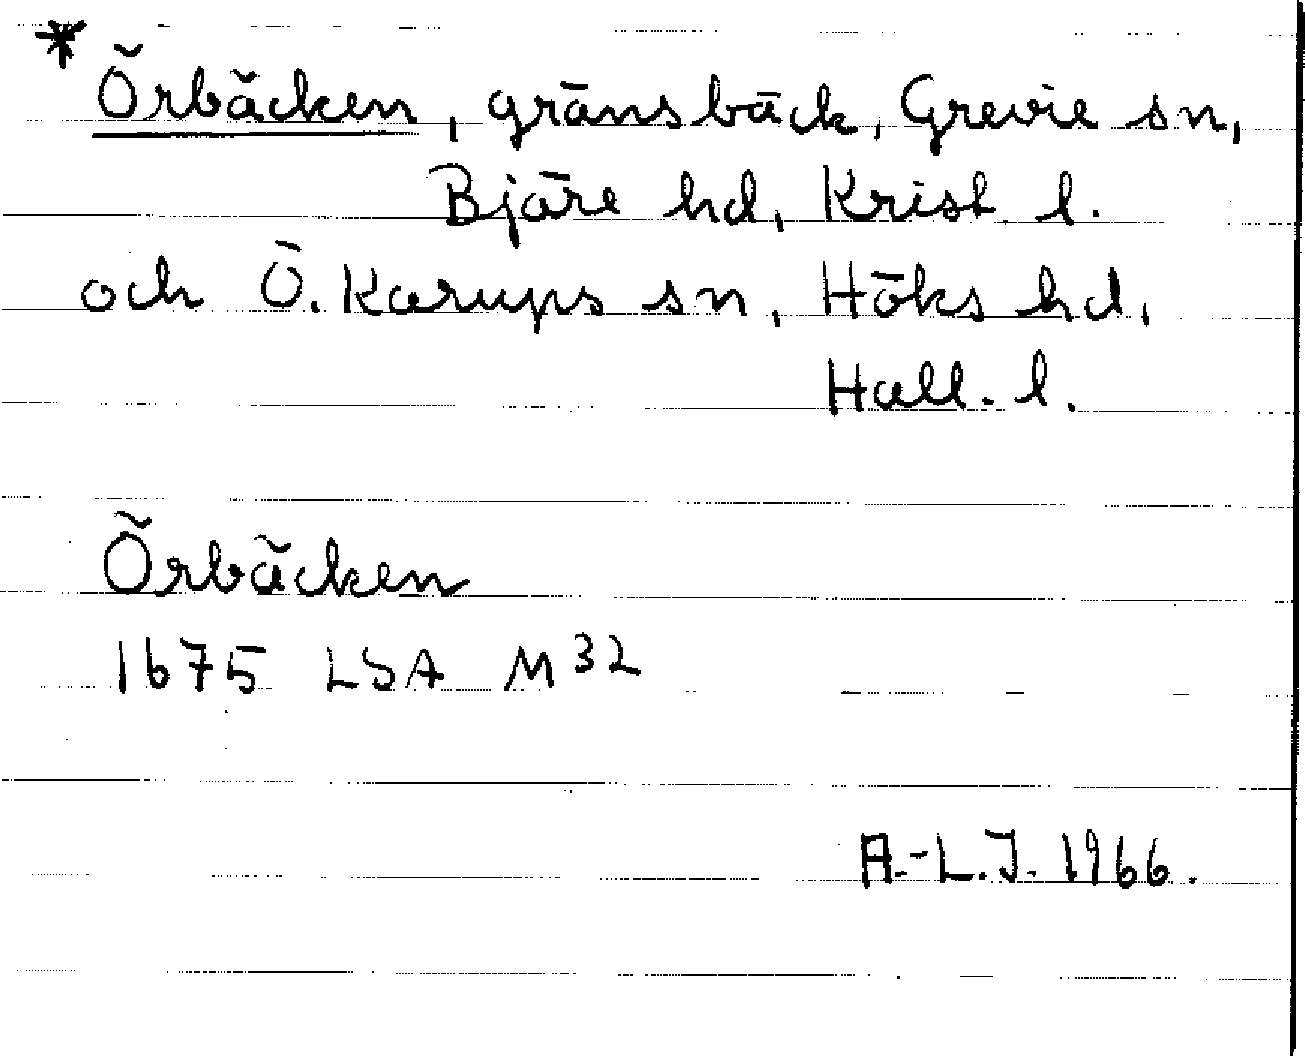 * Örbäcken, gränsbäck, Grevie sn,
Bjäre hd, Krist. l.
och Ö. Karups sn, Höks hd,
Hall. l.
Örbäcken
1675 LSA M 32
A.-L.J. 1966.